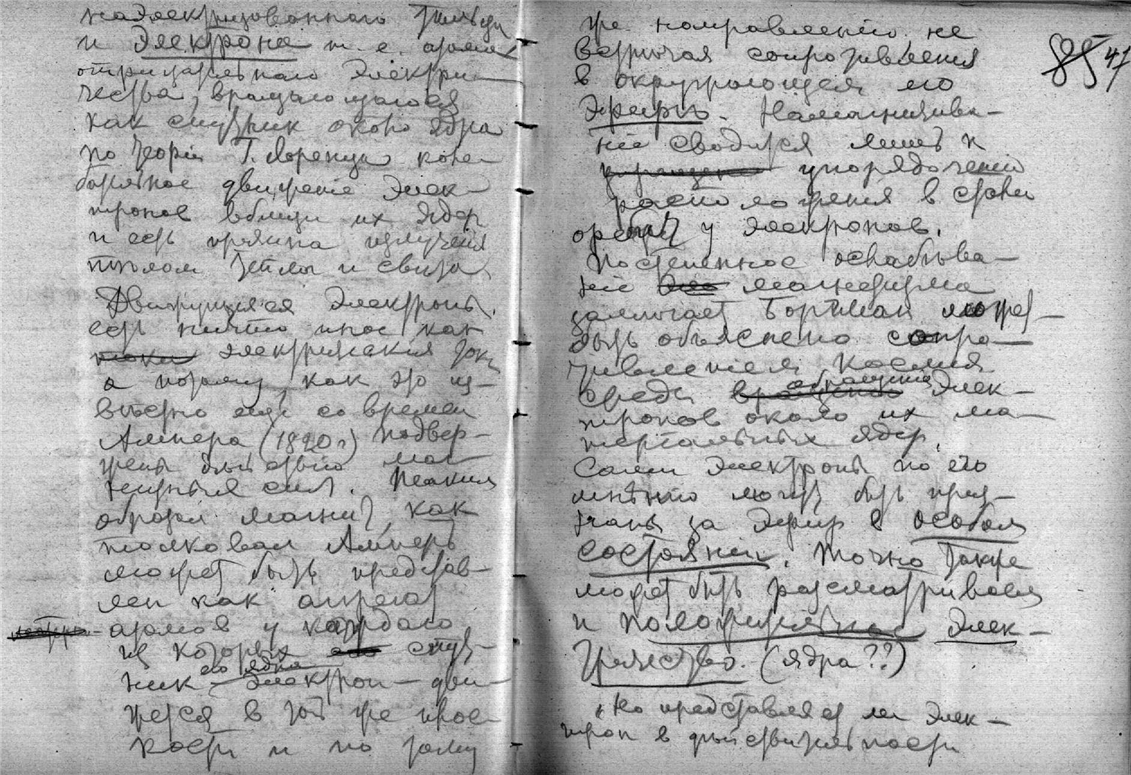 наэлектризованного
и электрона т. е. атома
отрицательнаго электри-
чества, вращающагося
как спутник около ядра
по теорiи Г. Лоренца коле-
бательное движенiе элек-
тронов вблизи их ядер
и есть причина излученiя
теплом теплы и света.
Движущиеся электроны
есть ничто иное как
электрическiя токи
а потому, как это из-
вестно еще со времен
Ампера (1820 г.) подвер-
жены действiю маг-
нитных сил. Таким
образом магнит, как
толковал Амперъ
может быть представ-
лен как агрегат
атомов у каждаго
из которых спут-
ник его ядра электрон — дви-
жется в той же плос-
кости и по тому
85 47
же направленiю не
встречая сопротивления
в окружающем его
Эфире. Намагничива-
нiе сводится лишь к
упорядоченiю
расположения в
орбит у электронов.
Постепенное ослабева-
нiе магнетизма
замечает Боргман может
быть объяснено сопро-
тивлением Космич
среды обращению элек-
тронов около их ма-
терiальных ядер.
Сами электроны по его
мнѣнiю могут быть приз-
наны за эфир в особом
состоянiи. Точно также
может быть рассматриваем
и положительное элек-
тричество. (ядра??)
"Но представляет ли элек-
трон в действительности